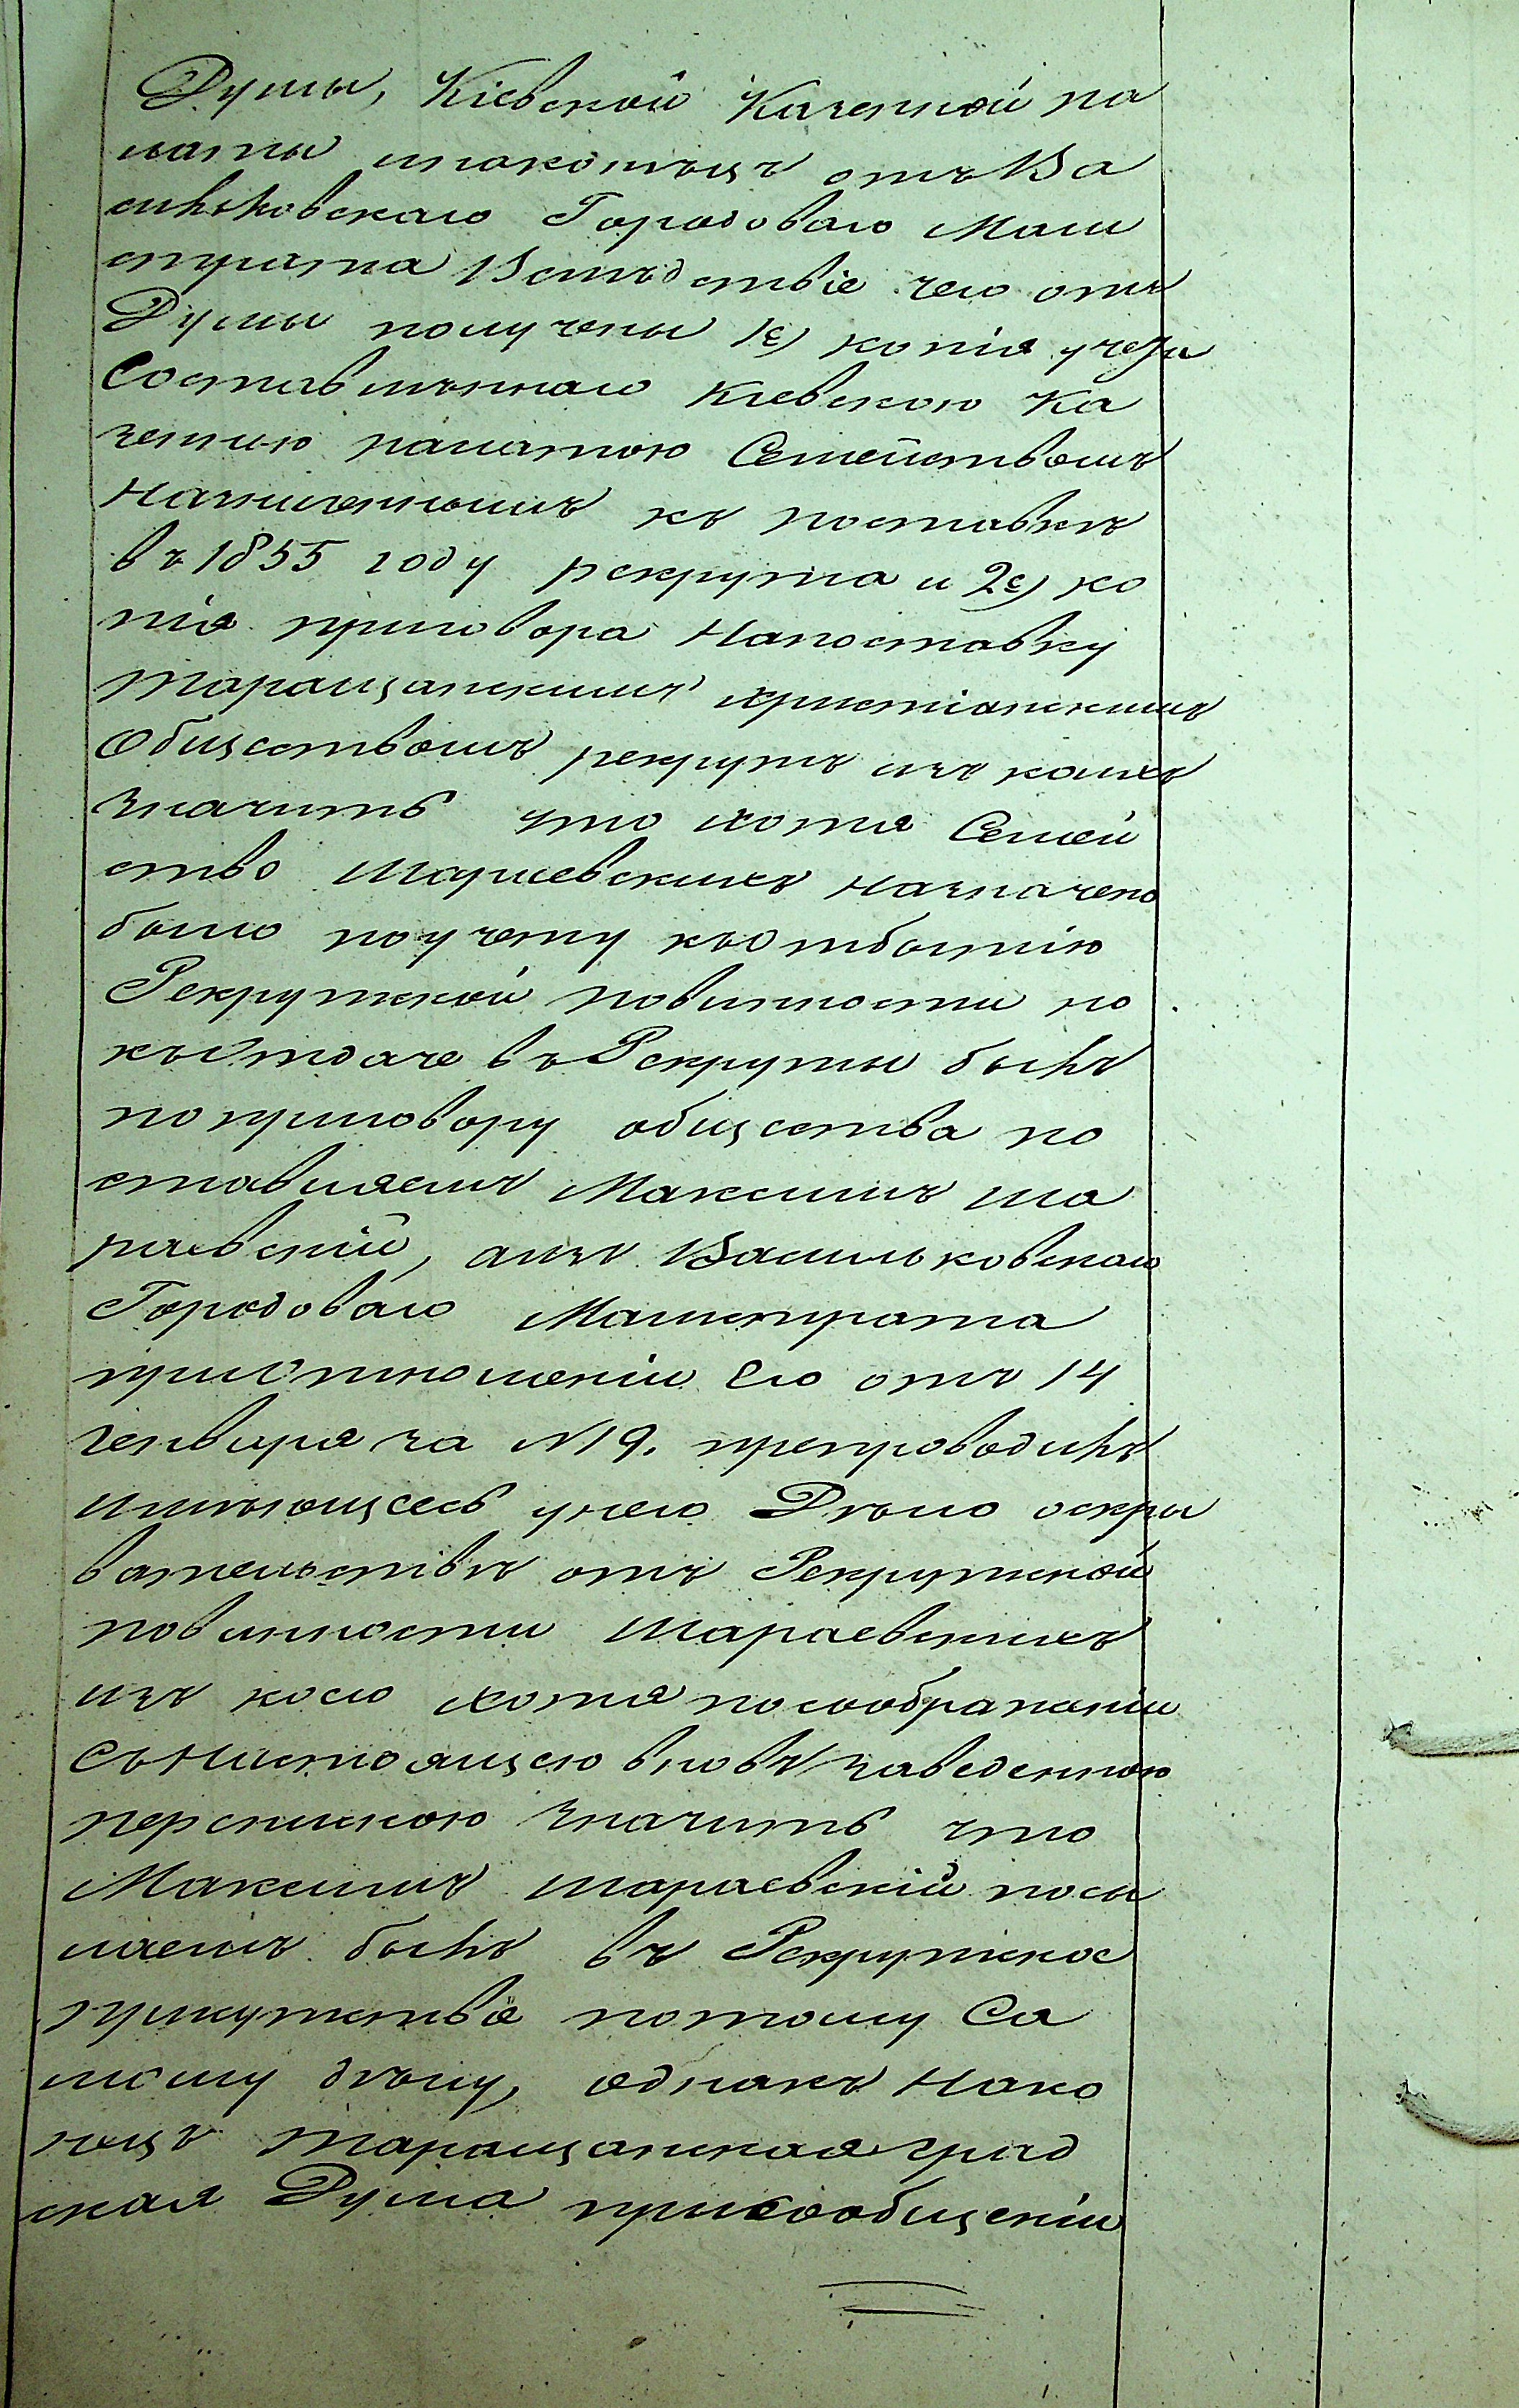 Думы, Кіевской Казенной па
латы инаконецъ отъ Ва
сильковскаго Городоваго Маги
страта Вслѣдствіе чего отъ
Думы получены 1е) копія учета
Составленнаго Кіевскою Ка
зенною палатою Семействамъ
Назначеннымъ къ поставкѣ
въ 1855 году рекрута и 2е) ко
пія приговора Напоставку
Таращанскимъ христіанскимъ
Обществомъ рекрутъ изъ коихъ
значитъ что хотя Семей
ство Шараевскихъ Назначено
было поучету къотбытію
Рекрутской повинности но
къотдаче въ Рекруты былъ
поприговору общества по
ставляемъ Максимъ Ша
раевскій, аизъ Васильковскаго
Городоваго Магистрата
приотношеніи Его отъ 14
Генваря за N 19. препроводилъ
имѣющееся унего Дѣло оскры
вательствѣ отъ Рекрутской
повинности Шараевскихъ
изъ коего хотя посоображеніи
съНастоящею вновь заведенною
перепискою значитъ что
Максимъ Шараевскій посы
лаемъ былъ въ Рекрутское
присутствіе потому Са
мому дѣлу, однакъ Нако
нецъ Таращанская град
ская Дума присообщеніи